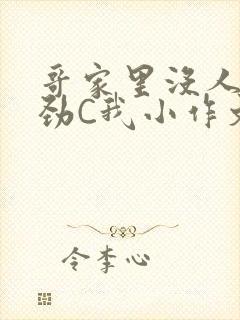 哥家里没人
劲C我小作文
令李心